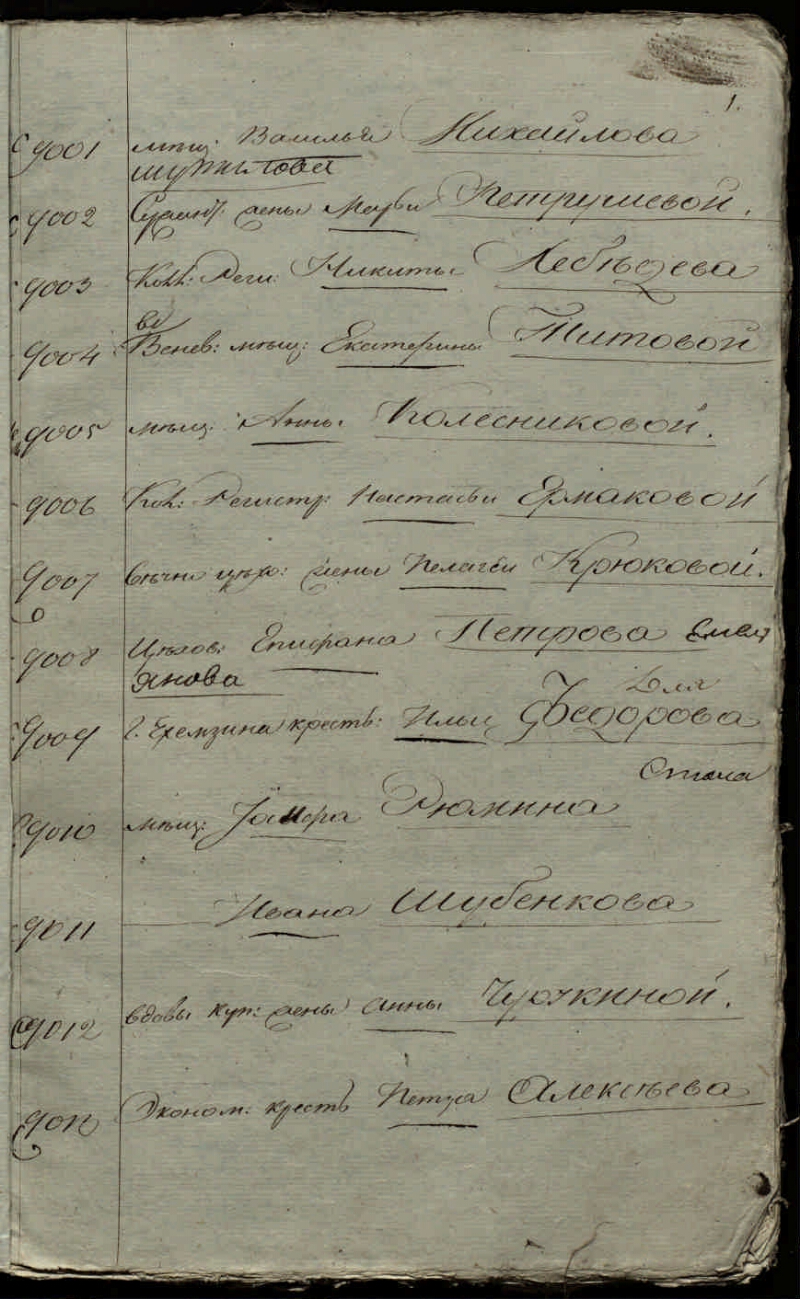 1.
9001 мѣщ: Василья Михайлова
9002 жены Марьи Петрушевой.
9003 Кол: Реги: Никиты Лебѣдева
9004 Венев: мѣщ: Екатерины Титовой
9005 мѣщ. Анны Колесниковой.
9006 Кол: Регистр: Настасьи Ермаковой
9007 вѣчно цѣх: жены Пелагеи Крюковой.
9008 Цѣхов: Епифана Петрова Емел
янова
9009 г. Еремзина кресть: Ильи Федорова
9010 мѣщ: Рюмина
9011 Ивана Шубенкова
9012 вдовы куп: жены Анны
Эконом: кресть Петра Алексѣева